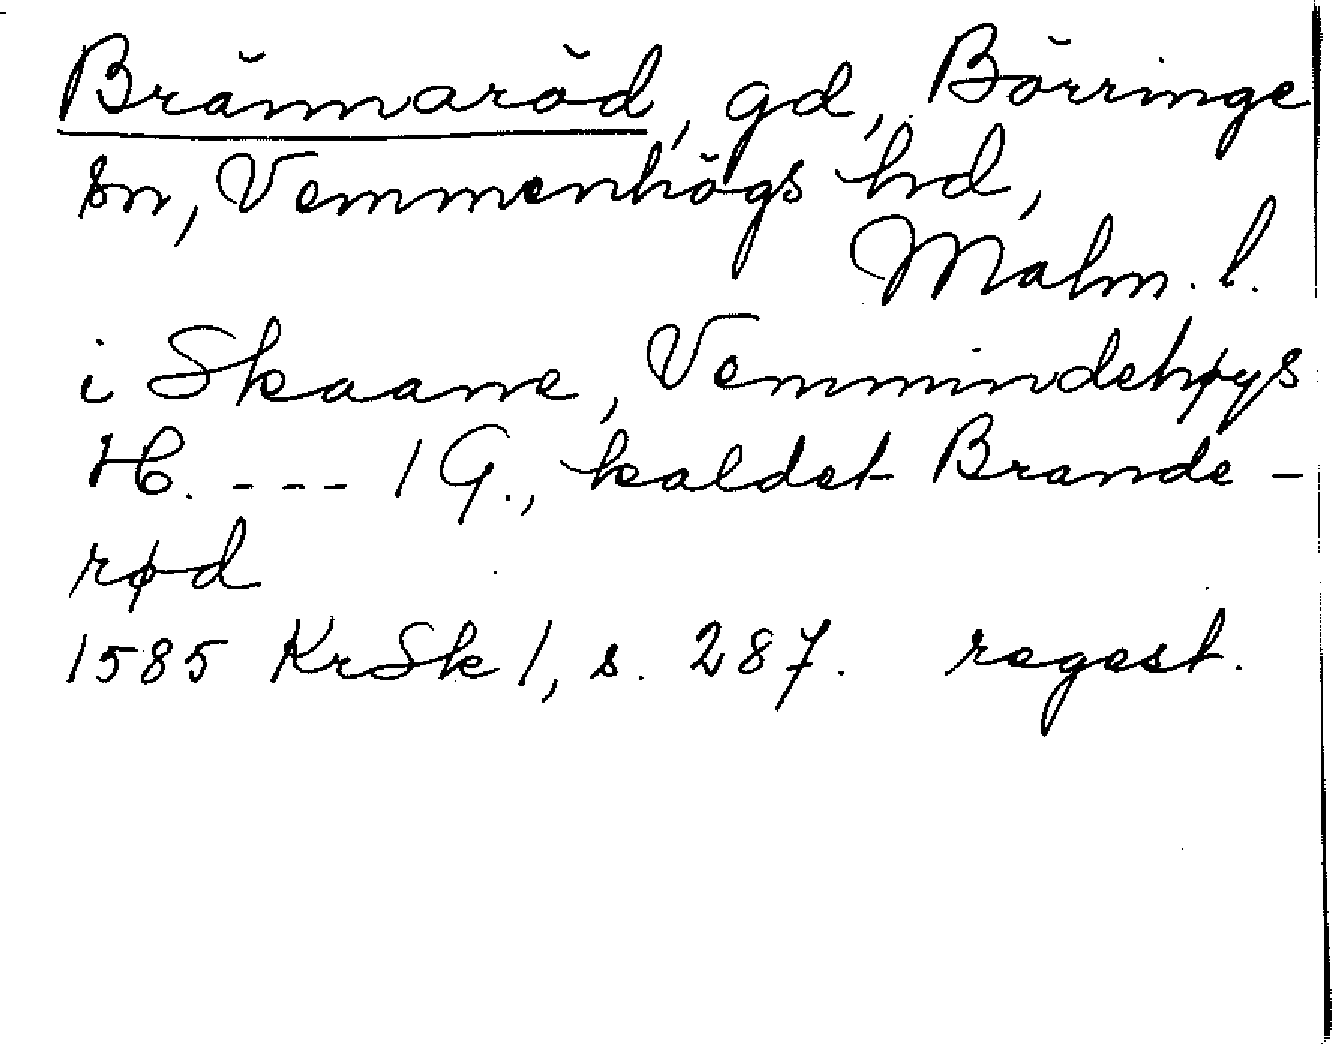 Brännaröd, gd, Börringe
sn, Vemmenhögs hd,
Malm. l.
i Skaane, Vemmindehøys
H. --- 1 G., kaldet Brande-
rød
1585 KrSk 1, s. 287. regest.